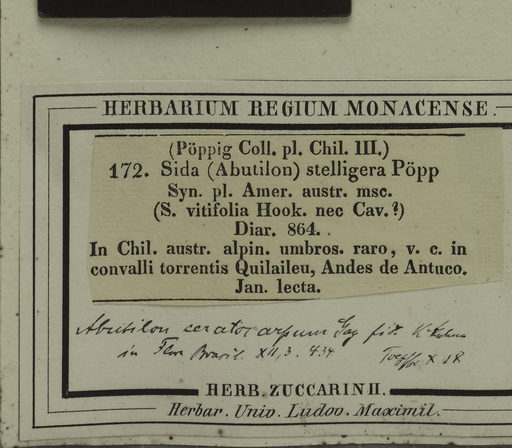 HERBARIUM REGIUM MONACENSE.
(Pöppig Coll. pl. Chil. III.)
172. Sida (Abutilon) stelligera Pöpp
Syn. pl. Amer. austr. msc.
(S. vitifolia Hook. nec Cav.?)
Diar. 864.
In Chil. austr. alpin. umbros. raro, v. c. in
convalli torrentis Quilaileu, Andes de Antuco.
Jan. lecta.
Abutilon ceratocarpum
in Flora Brasil. XII, 3. 434
HERB. ZUCCARINII.
Herbar. Univ. Ludov. Maximil.